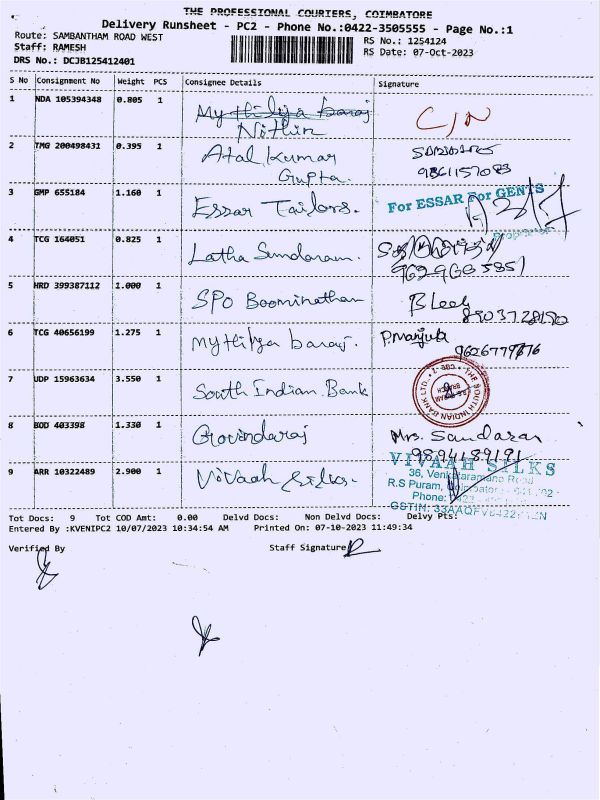 THE PROFESSIONAL COURIERS, COIMBATORE
Delivery Runsheet - PC2 - Phone No.:0422-3505555 - Page No.:1
Route: SAMBANTHAM ROAD WEST
RS No.: 1254124
Staff: RAMESH
RS Date: 07-Oct-2023
DRS No.: DCJB125412401
S No Consignment No Weight PCS Consignee Details Signature
1 NDA 105394348 0.805 1 Mythilya baraj
Nithin
2 TMG 200498431 0.395 1 Atal Kumar
Gupta. 9361157083
3 GMP 655184 1.160 1 Essar Tailors. For ESSAR For GENTS
Proprietor
4 TCG 164051 0.825 1 Latha Sundaram.
5 HRD 399387112 1.000 1 SPO Boominathan
6 TCG 40656199 1.275 1 mythilya baraj. P.Manjula
7 UDP 15963634 3.550 1 South Indian Bank THE SOUTH INDIAN BANK LTD.
8 BOD 403398 1.330 1 Govindaraj Mrs. Sundaran
9894189191
9 ARR 10322489 2.900 1 ViVaah Silks. VIVAAH SILKS
36, Venkataramana Road
R.S Puram, Coimbatore
Phone:
GSTIN:
Tot Docs: 9 Tot COD Amt: 0.00 Delvd Docs: Non Delvd Docs: Delvy Pts:
Entered By :KVENIPC2 10/07/2023 10:34:54 AM Printed On: 07-10-2023 11:49:34
Verified By Staff Signature